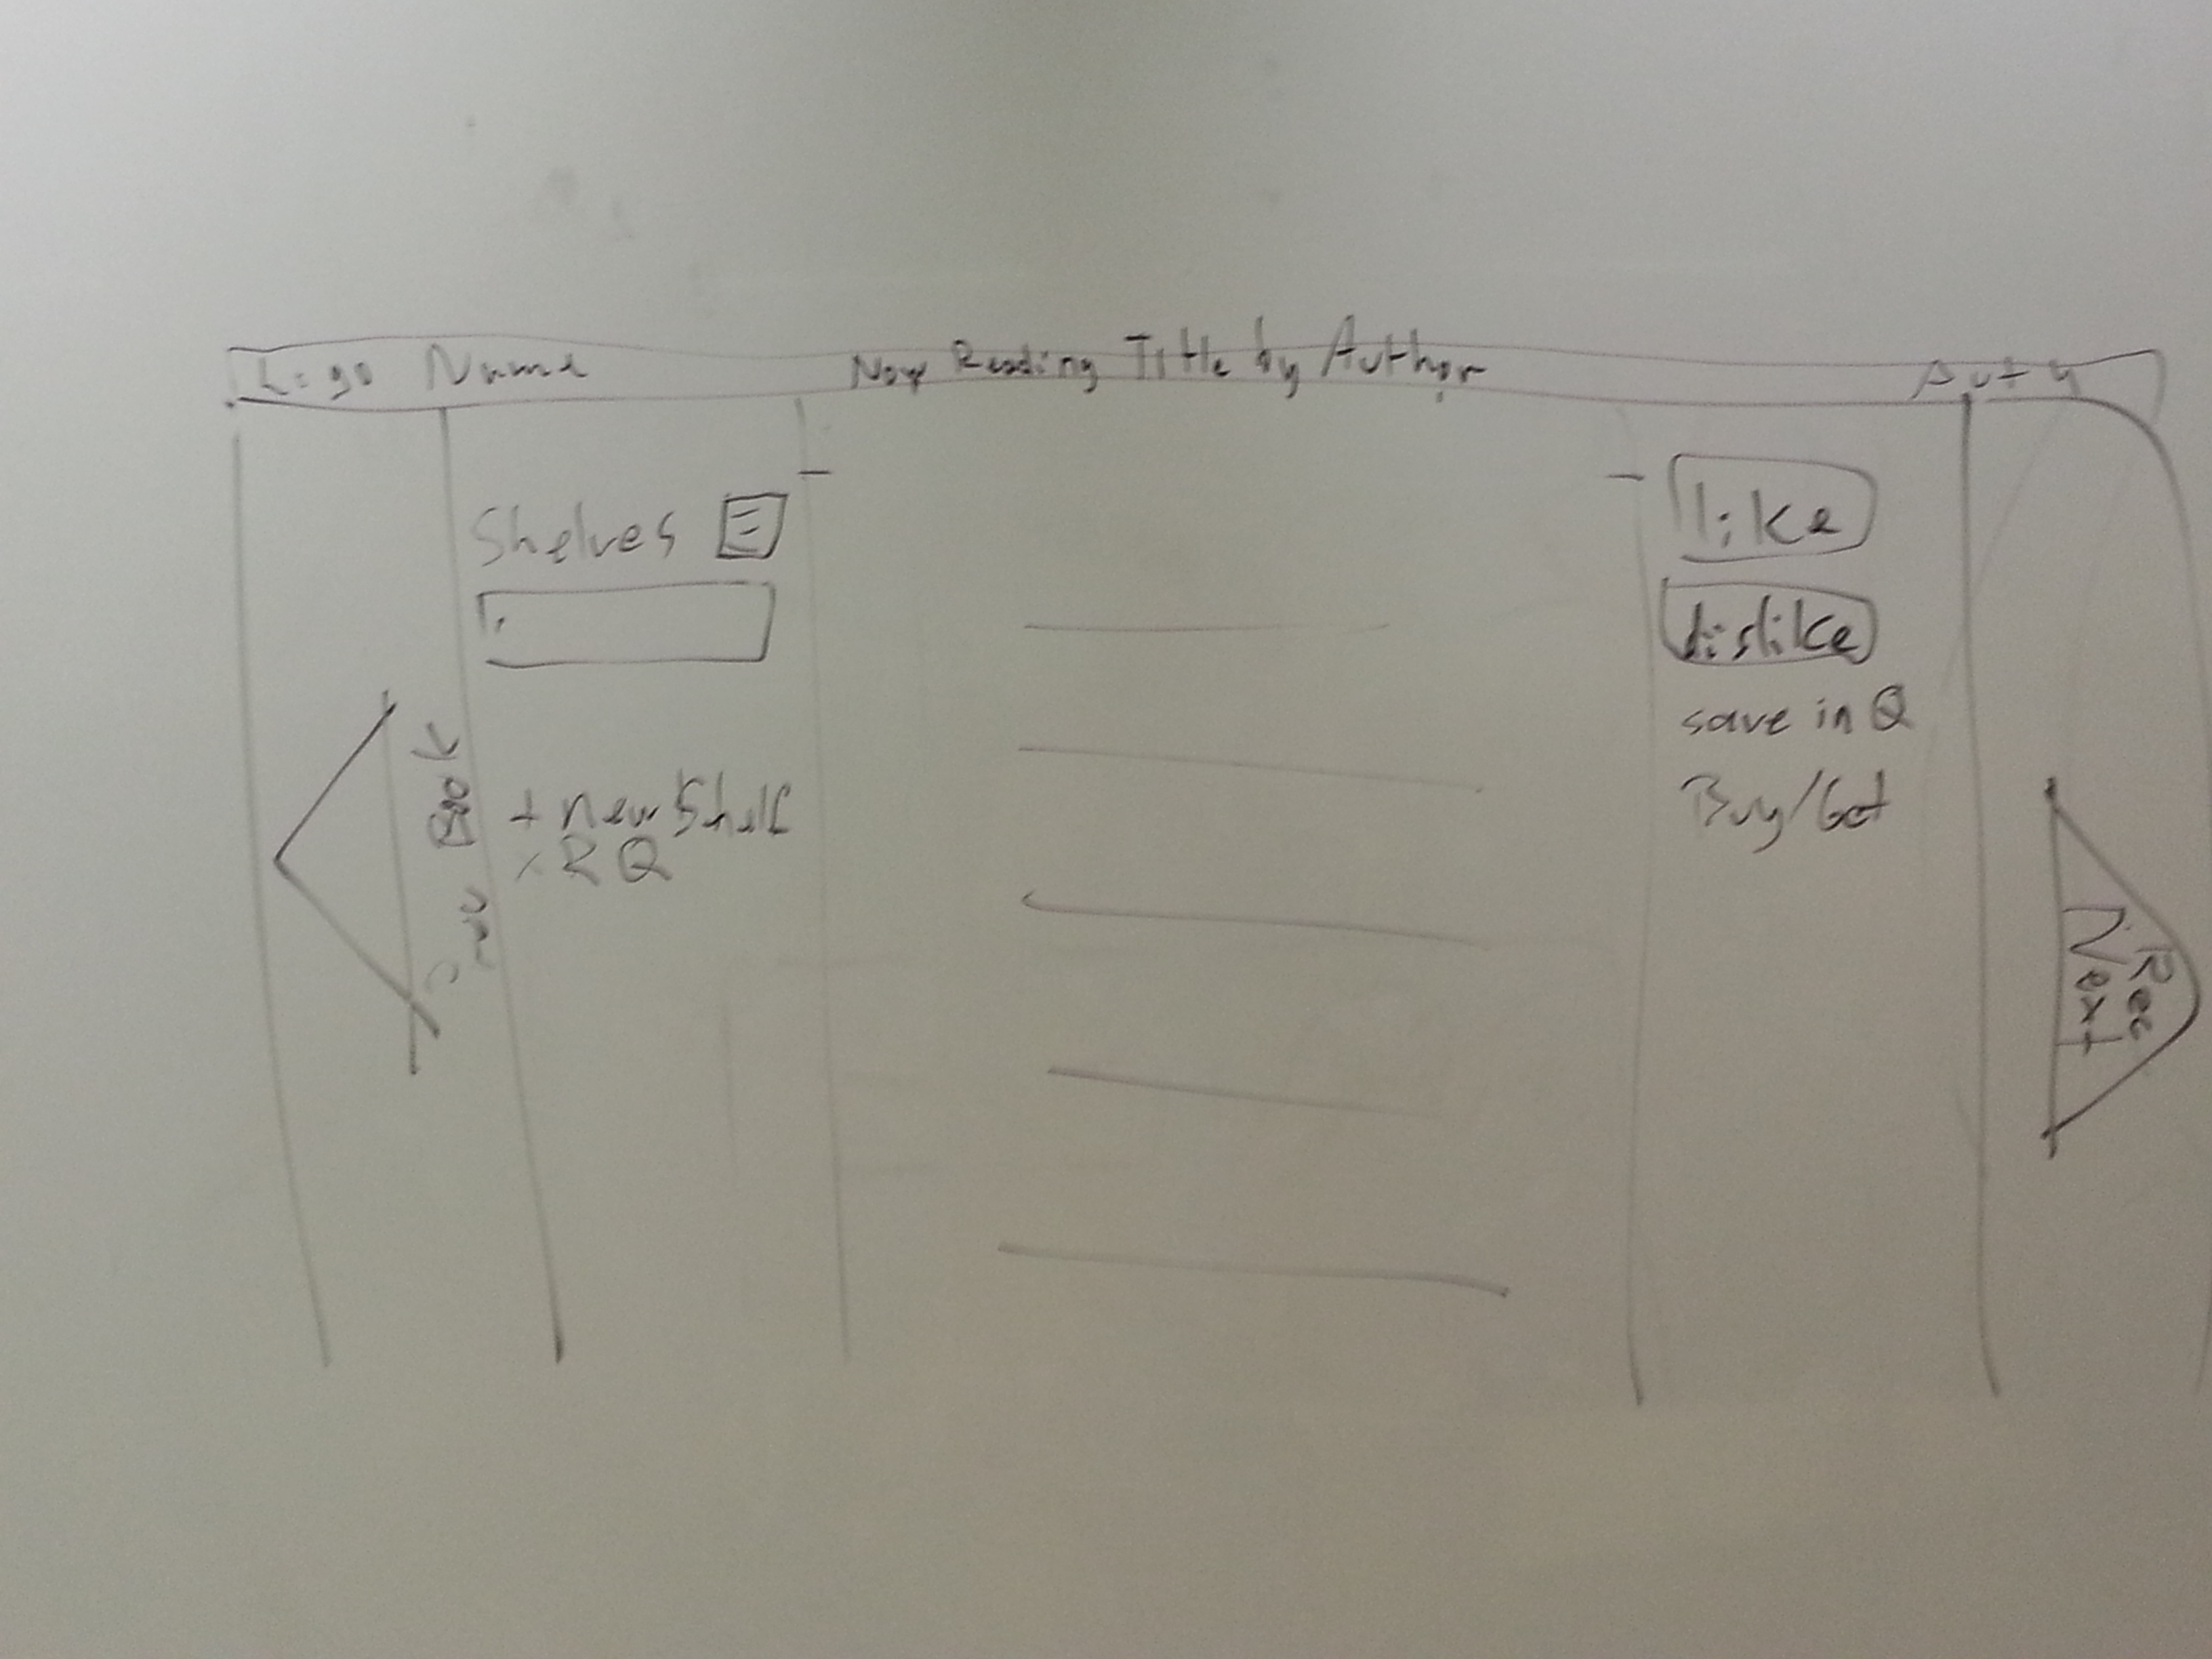 Logo Name
Now Reading Title by Author
Auth
Shelves
+ new Shelf
x R Q
Prev Book
like
dislike
save in Q
Buy/Get
Next
Rec